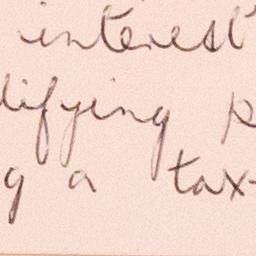 interest
lifying p
g a tax-